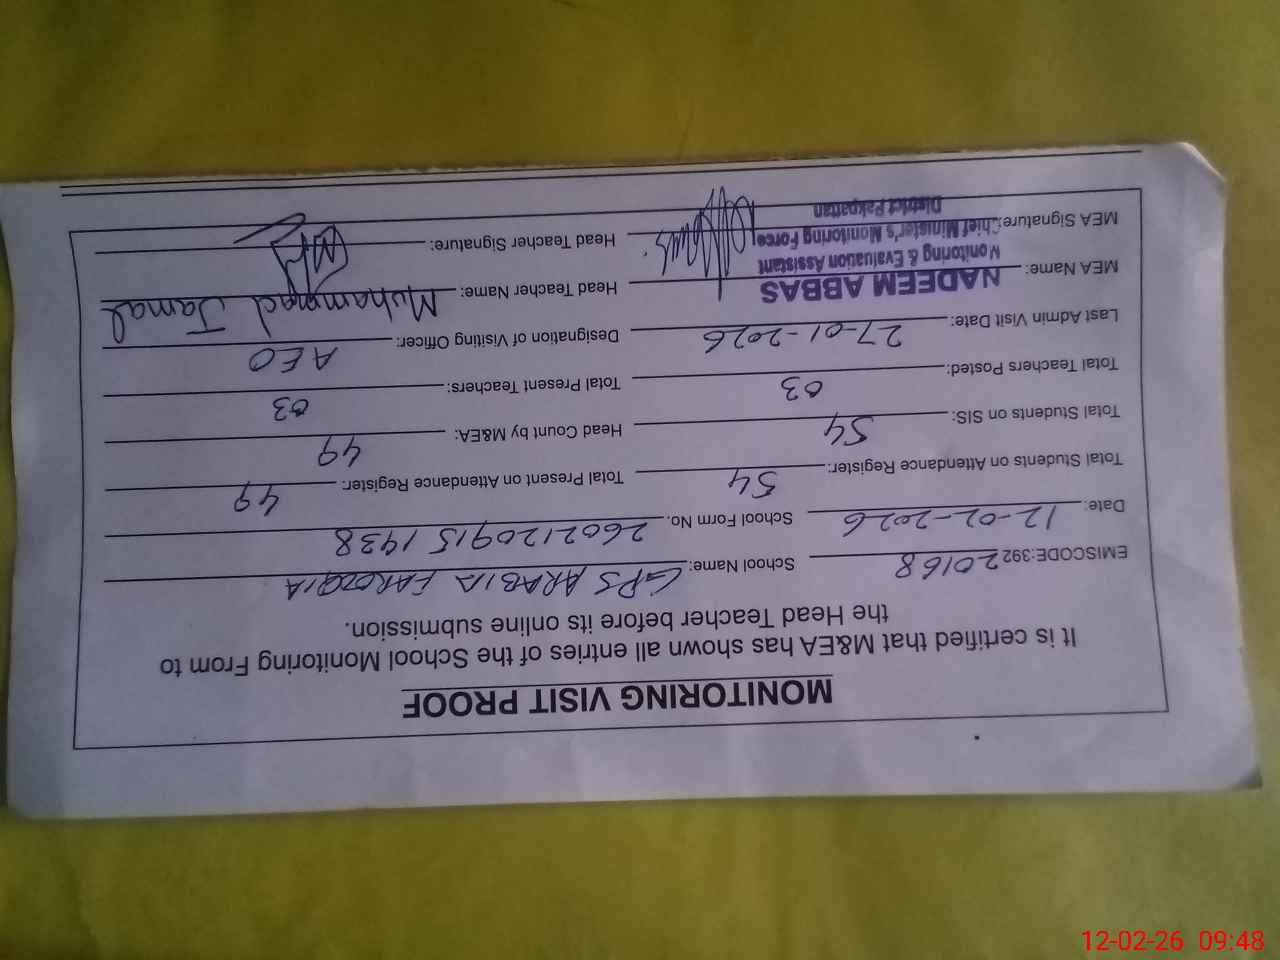 MONITORING VISIT PROOF
It is certified that M&EA has shown all entries of the School Monitoring From to
the Head Teacher before its online submission.
EMISCODE:392 20168 School Name: GPS ARABIIA FAROOQIA
Date: 12-02-2026 School Form No. 2602120915 1938
Total Students on Attendance Register: 54 Total Present on Attendance Register: 49
Total Students on SIS: 54 Head Count by M&EA: 49
Total Teachers Posted: 03 Total Present Teachers: 03
Last Admin Visit Date: 27-01-2026 Designation of Visiting Officer: AEO
MEA Name: NADEEM ABBAS Head Teacher Name: Muhammad Jamal
Monitoring & Evaluation Assistant
MEA Signature: Chief Minister's Monitoring Force Head Teacher Signature:
District Pakpattan
12-02-26 09:48